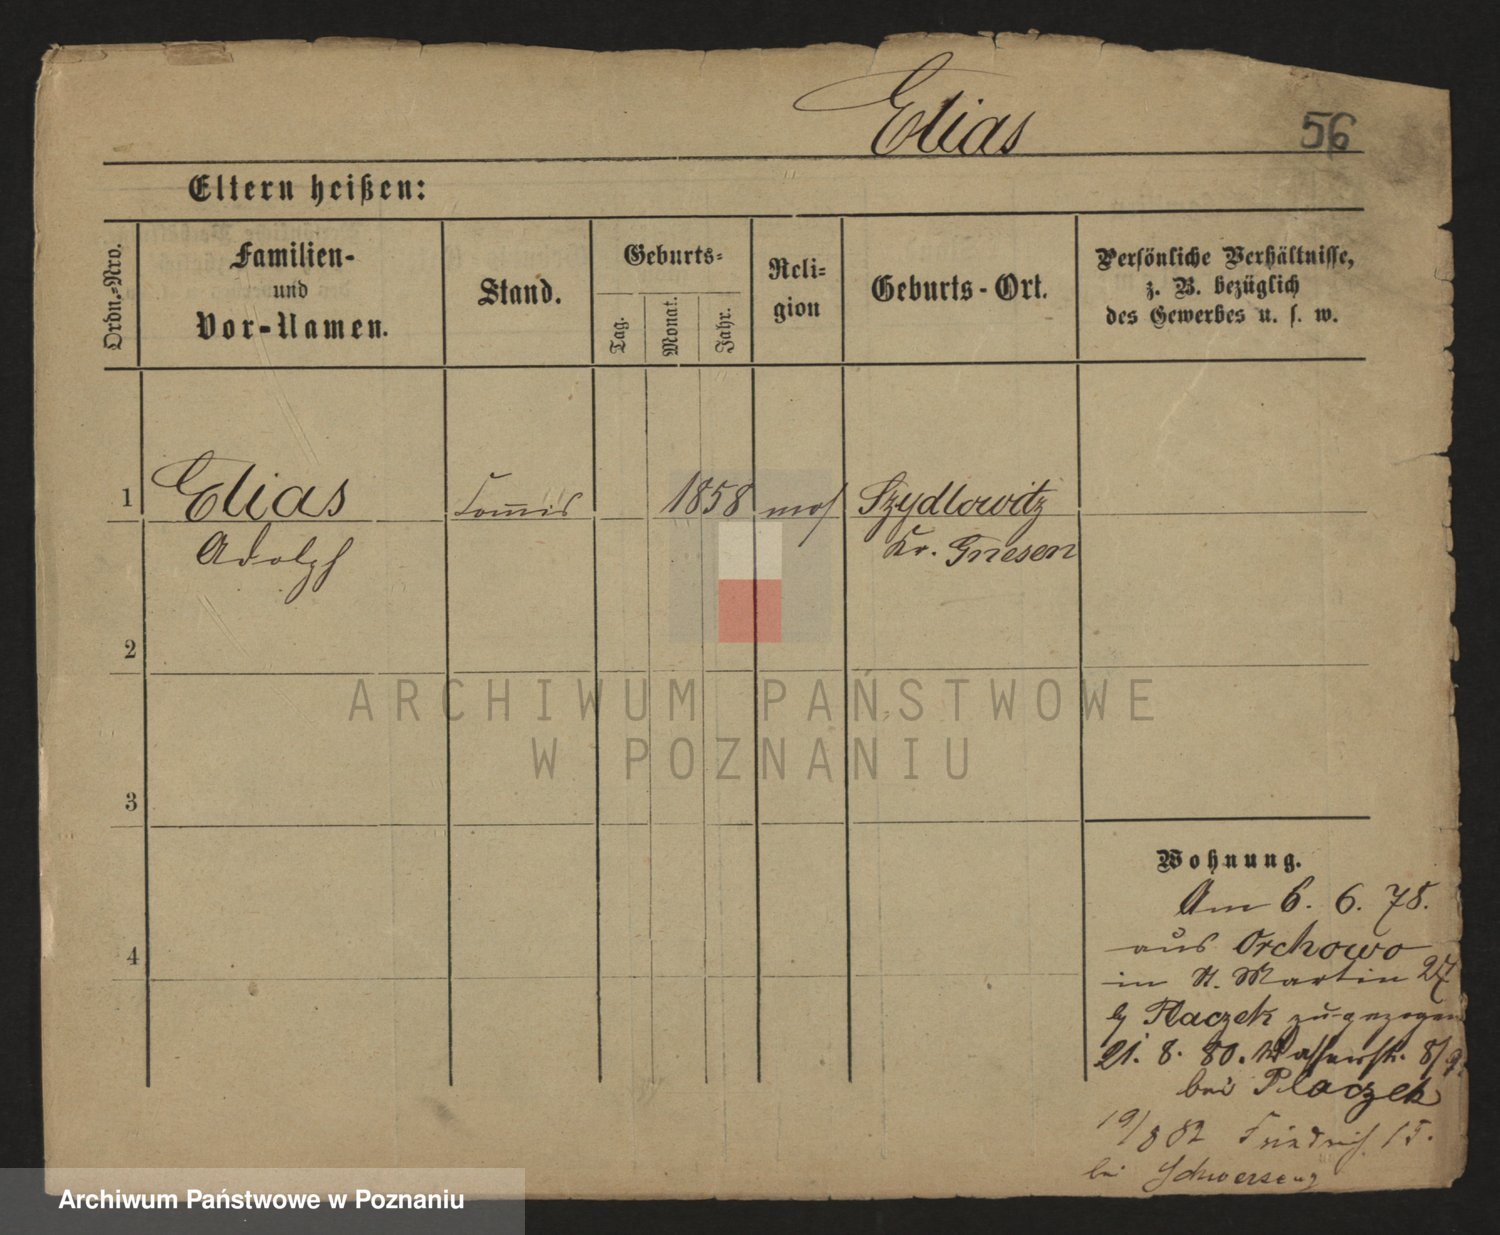 Elias
56
Eltern heißen:
Ordn.-Nro.
Familien-
und
Vor-Namen.
Stand.
Geburts-
Tag.
Monat.
Jahr.
Reli-
gion
Geburts-Ort.
Persönliche Verhältnisse,
z. B. bezüglich
des Gewerbes u. s. w.
1
Elias
Commis
1858
mos
Szydlowitz
Adolph
Kr. Gnesen
2
3
4
ARCHIWUM PAŃSTWOWE
W POZNANIU
Wohnung.
Am 6. 6. 78.
aus Orchowo
in St. Martin 27
b/ Placzek zugezogen
21. 8. 80. Wasserstr. 8/9.
bei Placzek
19/8 82 Friedrich
bei Schwersenz
Archiwum Państwowe w Poznaniu